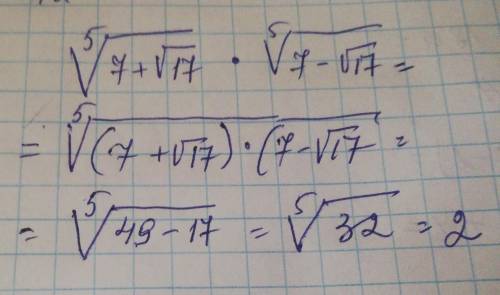 ⁵√(7+√17) · ⁵√(7-√17) =
= ⁵√((7+√17)·(7-√17) =
= ⁵√(49-17) = ⁵√32 = 2